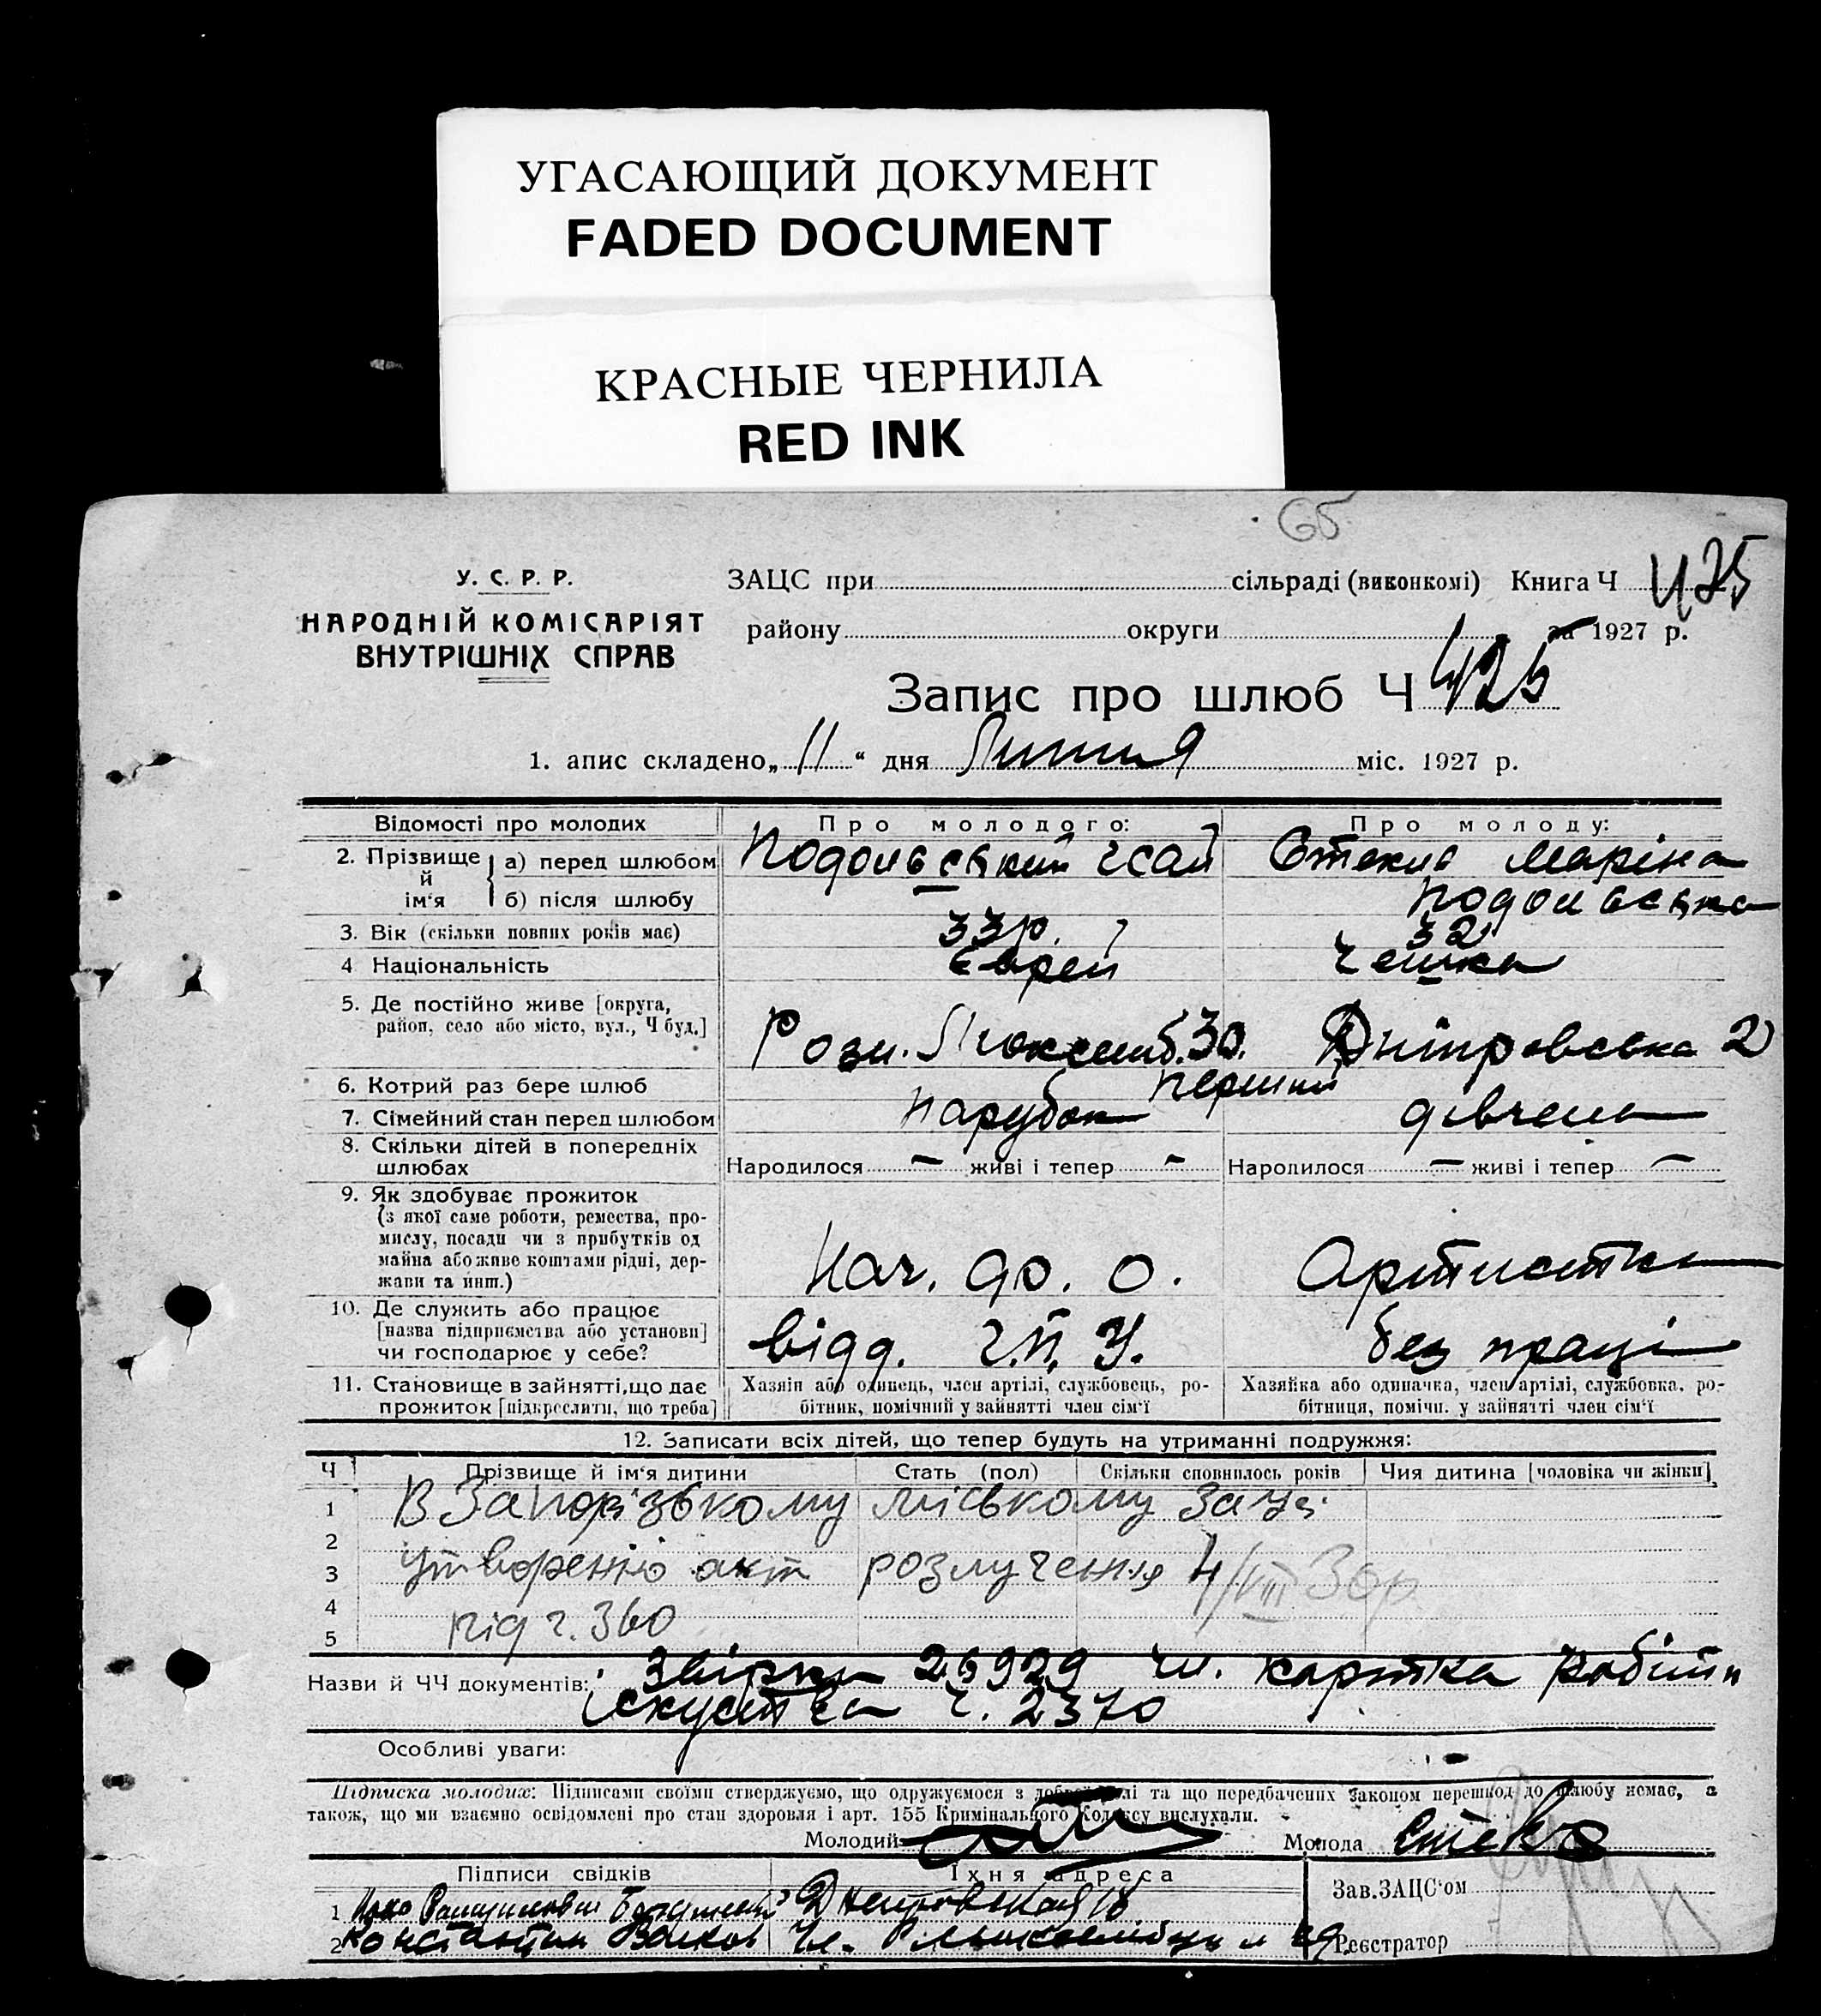 УГАСАЮЩИЙ ДОКУМЕНТ
FADED DOCUMENT
КРАСНЫЕ ЧЕРНИЛА
RED INK
65
У. С. Р. Р.
НАРОДНІЙ КОМІСАРІЯТ
ВНУТРІШНІХ СПРАВ
ЗАЦС при сільраді (виконкомі) Книга Ч 425
району округи за 1927 р.
Запис про шлюб Ч 425
1. апис складено „ 11 “ дня Липня міс. 1927 р.
Відомості про молодих Про молодого: Про молоду:
2. Прізвище й ім'я а) перед шлюбом Подольський Ісай Стекло Маріна
б) після шлюбу Подольська
3. Вік (скільки повних років має) 33 р. 32
4 Національність Єврей Чешка
5. Де постійно живе [округа,
район, село або місто, вул., Ч буд.] Рози Люксемб. 30. Дніпровська 2
6. Котрий раз бере шлюб перший
7. Сімейний стан перед шлюбом парубок дівчена
8. Скільки дітей в попередніх
шлюбах Народилося — живі і тепер — Народилося — живі і тепер —
9. Як здобуває прожиток
(з якої саме роботи, ремества, про-
мислу, посади чи з прибутків од
майна або живе коштами рідні, дер-
жави та инш.) Нач. О. Артистка
10. Де служить або працює
[назва підприємства або установи]
чи господарює у себе? Відд. Г.П.У. без праці
11. Становище в зайнятті, що дає
прожиток [підкреслити, що треба]
Хазяїн або одинець, член артілі, службовець, ро-
бітник, помічний у зайнятті член сім'ї
Хазяйка або одиначка, член артілі, службовка, ро-
бітниця, помічн. у зайнятті член сім'ї
12. Записати всіх дітей, що тепер будуть на утриманні подружжя:
Ч Прізвище й ім'я дитини Стать (пол) Скільки сповнилось років Чия дитина [чоловіка чи жінки]
1 В Запорізькому міському Зацсі
2
3 утворенно акт розлучення 4/VIII 30 р
4
5 під ч. 360
Назви й ЧЧ документів: 26929 чл. картка Робітн
іскуства ч. 2370
Особливі уваги:
Підписка молодих: Підписами своїми стверджуємо, що одружуємося з доброї волі та що передбачених законом перешкод до шлюбу немає, а
також, що ми взаємно освідомлені про стан здоровля і арт. 155 Кримінального Кодексу вислухали.
Молодий Молода Стекло
Підписи свідків Їхня адреса Зав. ЗАЦС'ом
1 Днепровская 18
2 Константин Волков Реєстратор